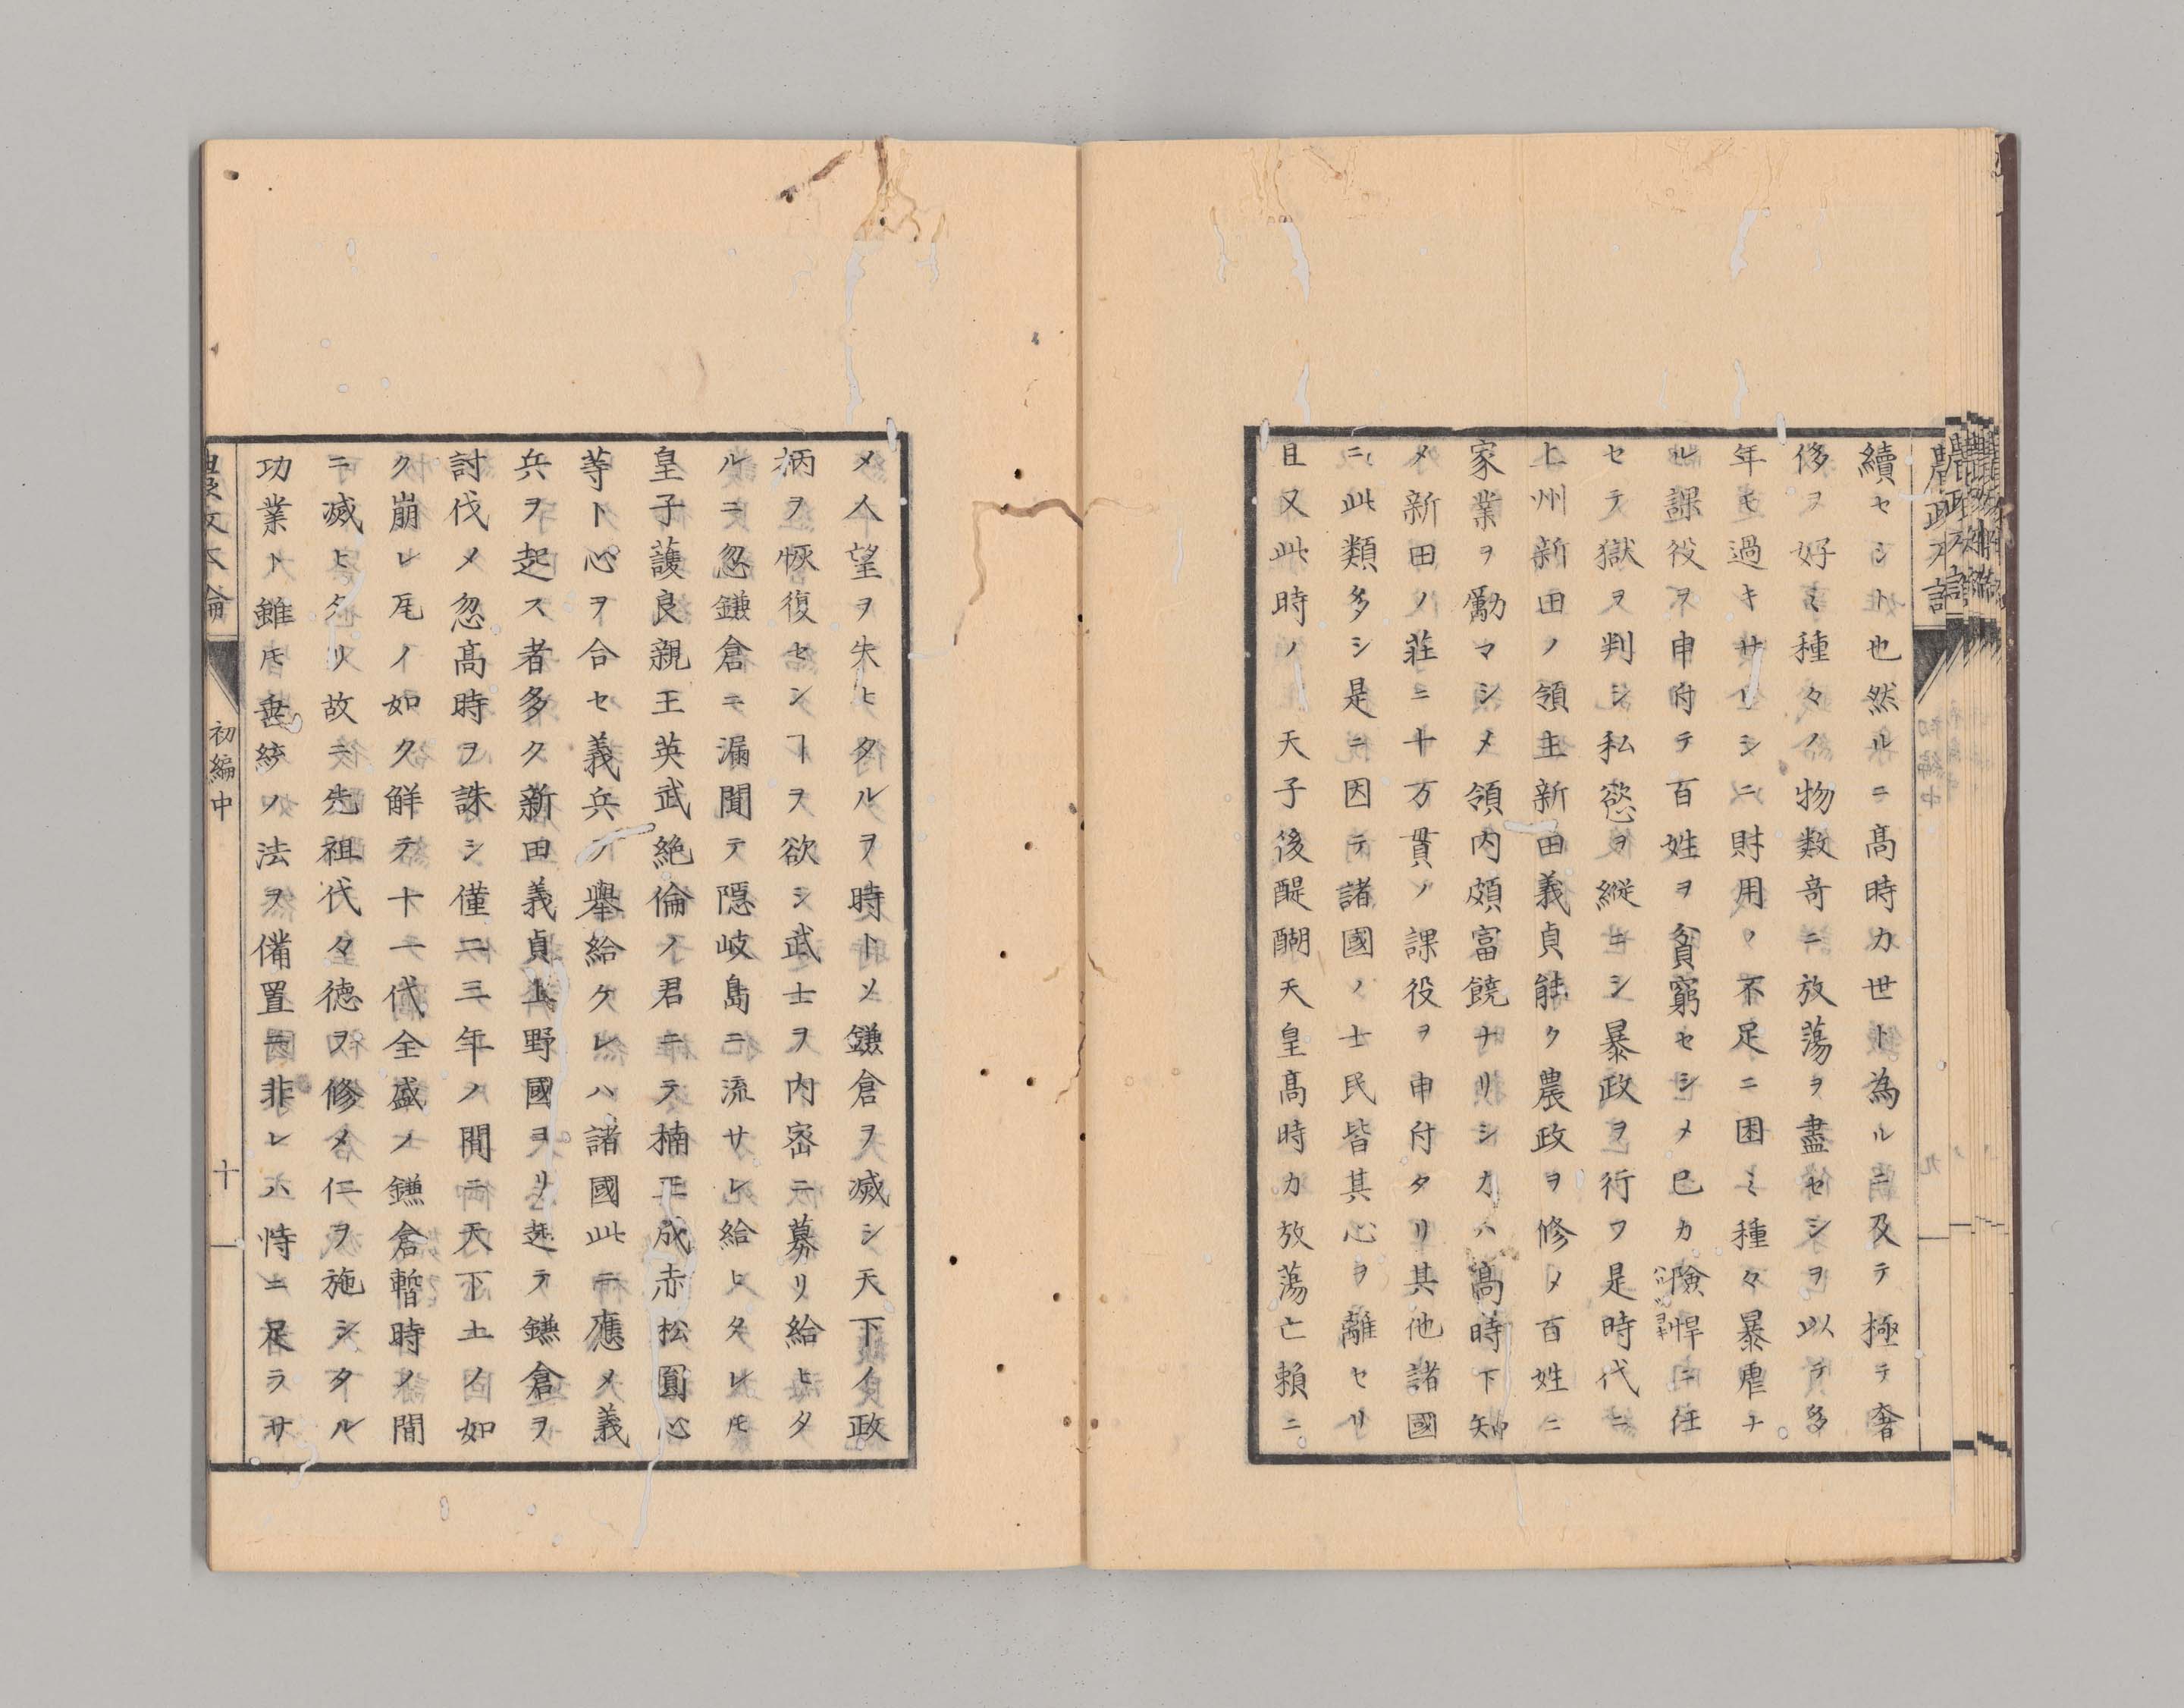 續セシト也然ルニ髙時カ世ト為ルニ及テ極テ奢
侈ヲ好ミ種々ノ物数竒ニ放蕩ヲ盡セシヲ以テ多
年モ過キサルシニ財用ノ不足ニ困ミ種々暴虐ナ
ル課役ヲ申付テ百姓ヲ貧窮セシメ己カ險悍ニ任
セテ獄ヲ判シ私慾ヲ縦ニシ暴政ヲ行フ是時代ニ
上州新田ノ領主新田義貞能ク農政ヲ修メ百姓ニ
家業ヲ勵マシメ領内頗富饒ナリシカハ髙時下知
メ新田ノ荘ニ十万貫ノ課役ヲ申付タリ其他諸國
ニ此類多シ是ニ因テ諸國ノ士民皆其心ヲ離セリ
且又此時ノ天子後醍醐天皇髙時カ放蕩亡頼ニ
メ人望ヲ失ヒタルヲ時トソ鎌倉ヲ滅シ天下ノ政
柄ヲ恢復セシヿヲ欲シ武士ヲ内宻ニ募リ給ヒタ
ルニ忽鎌倉ニ漏聞テ隠岐島ニ流サレ給ヒタレ𪜈
皇子護良親王英武絶倫ノ君ニテ楠正成赤松圓心
等ト心ヲ合セ義兵ヲ舉給ケレハ諸國此ニ應メ義
兵ヲ起ス者多ク新田義貞上野國ヨリ起テ鎌倉ヲ
討伐メ忽髙時ヲ誅シ僅二三年ノ間ニ天下土ノ如
ク崩レ瓦ノ如ク解テ十一代全盛ノ鎌倉暫時ノ間
ニ滅ヒタリ故ニ先祖代々德ヲ修メ仁ヲ施シタル
功業ト雖𪜈垂統ノ法ヲ備置ニ非レハ恃ニ足ラサ
初編中
十